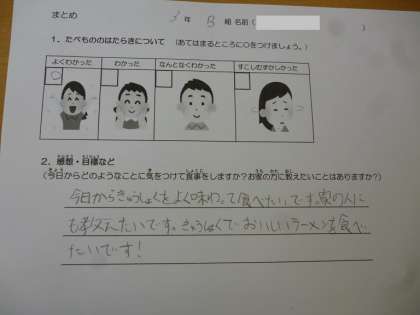 まとめ
3年 B組 名前( )
1.たべもののはたらきについて (あてはまるところに○をつけましょう。)
よくわかった わかった なんとなくわかった すこしむずかしかった
○
2.感想・目標など
(今日からどのようなことに気をつけて食事をしますか?お家の方に教えたいことはありますか?)
今日からきゅうしょくをよく味わって食べたいです。家の人に
も教えたいです。きゅうしょくでおいしいラーメンを食べ
たいです!